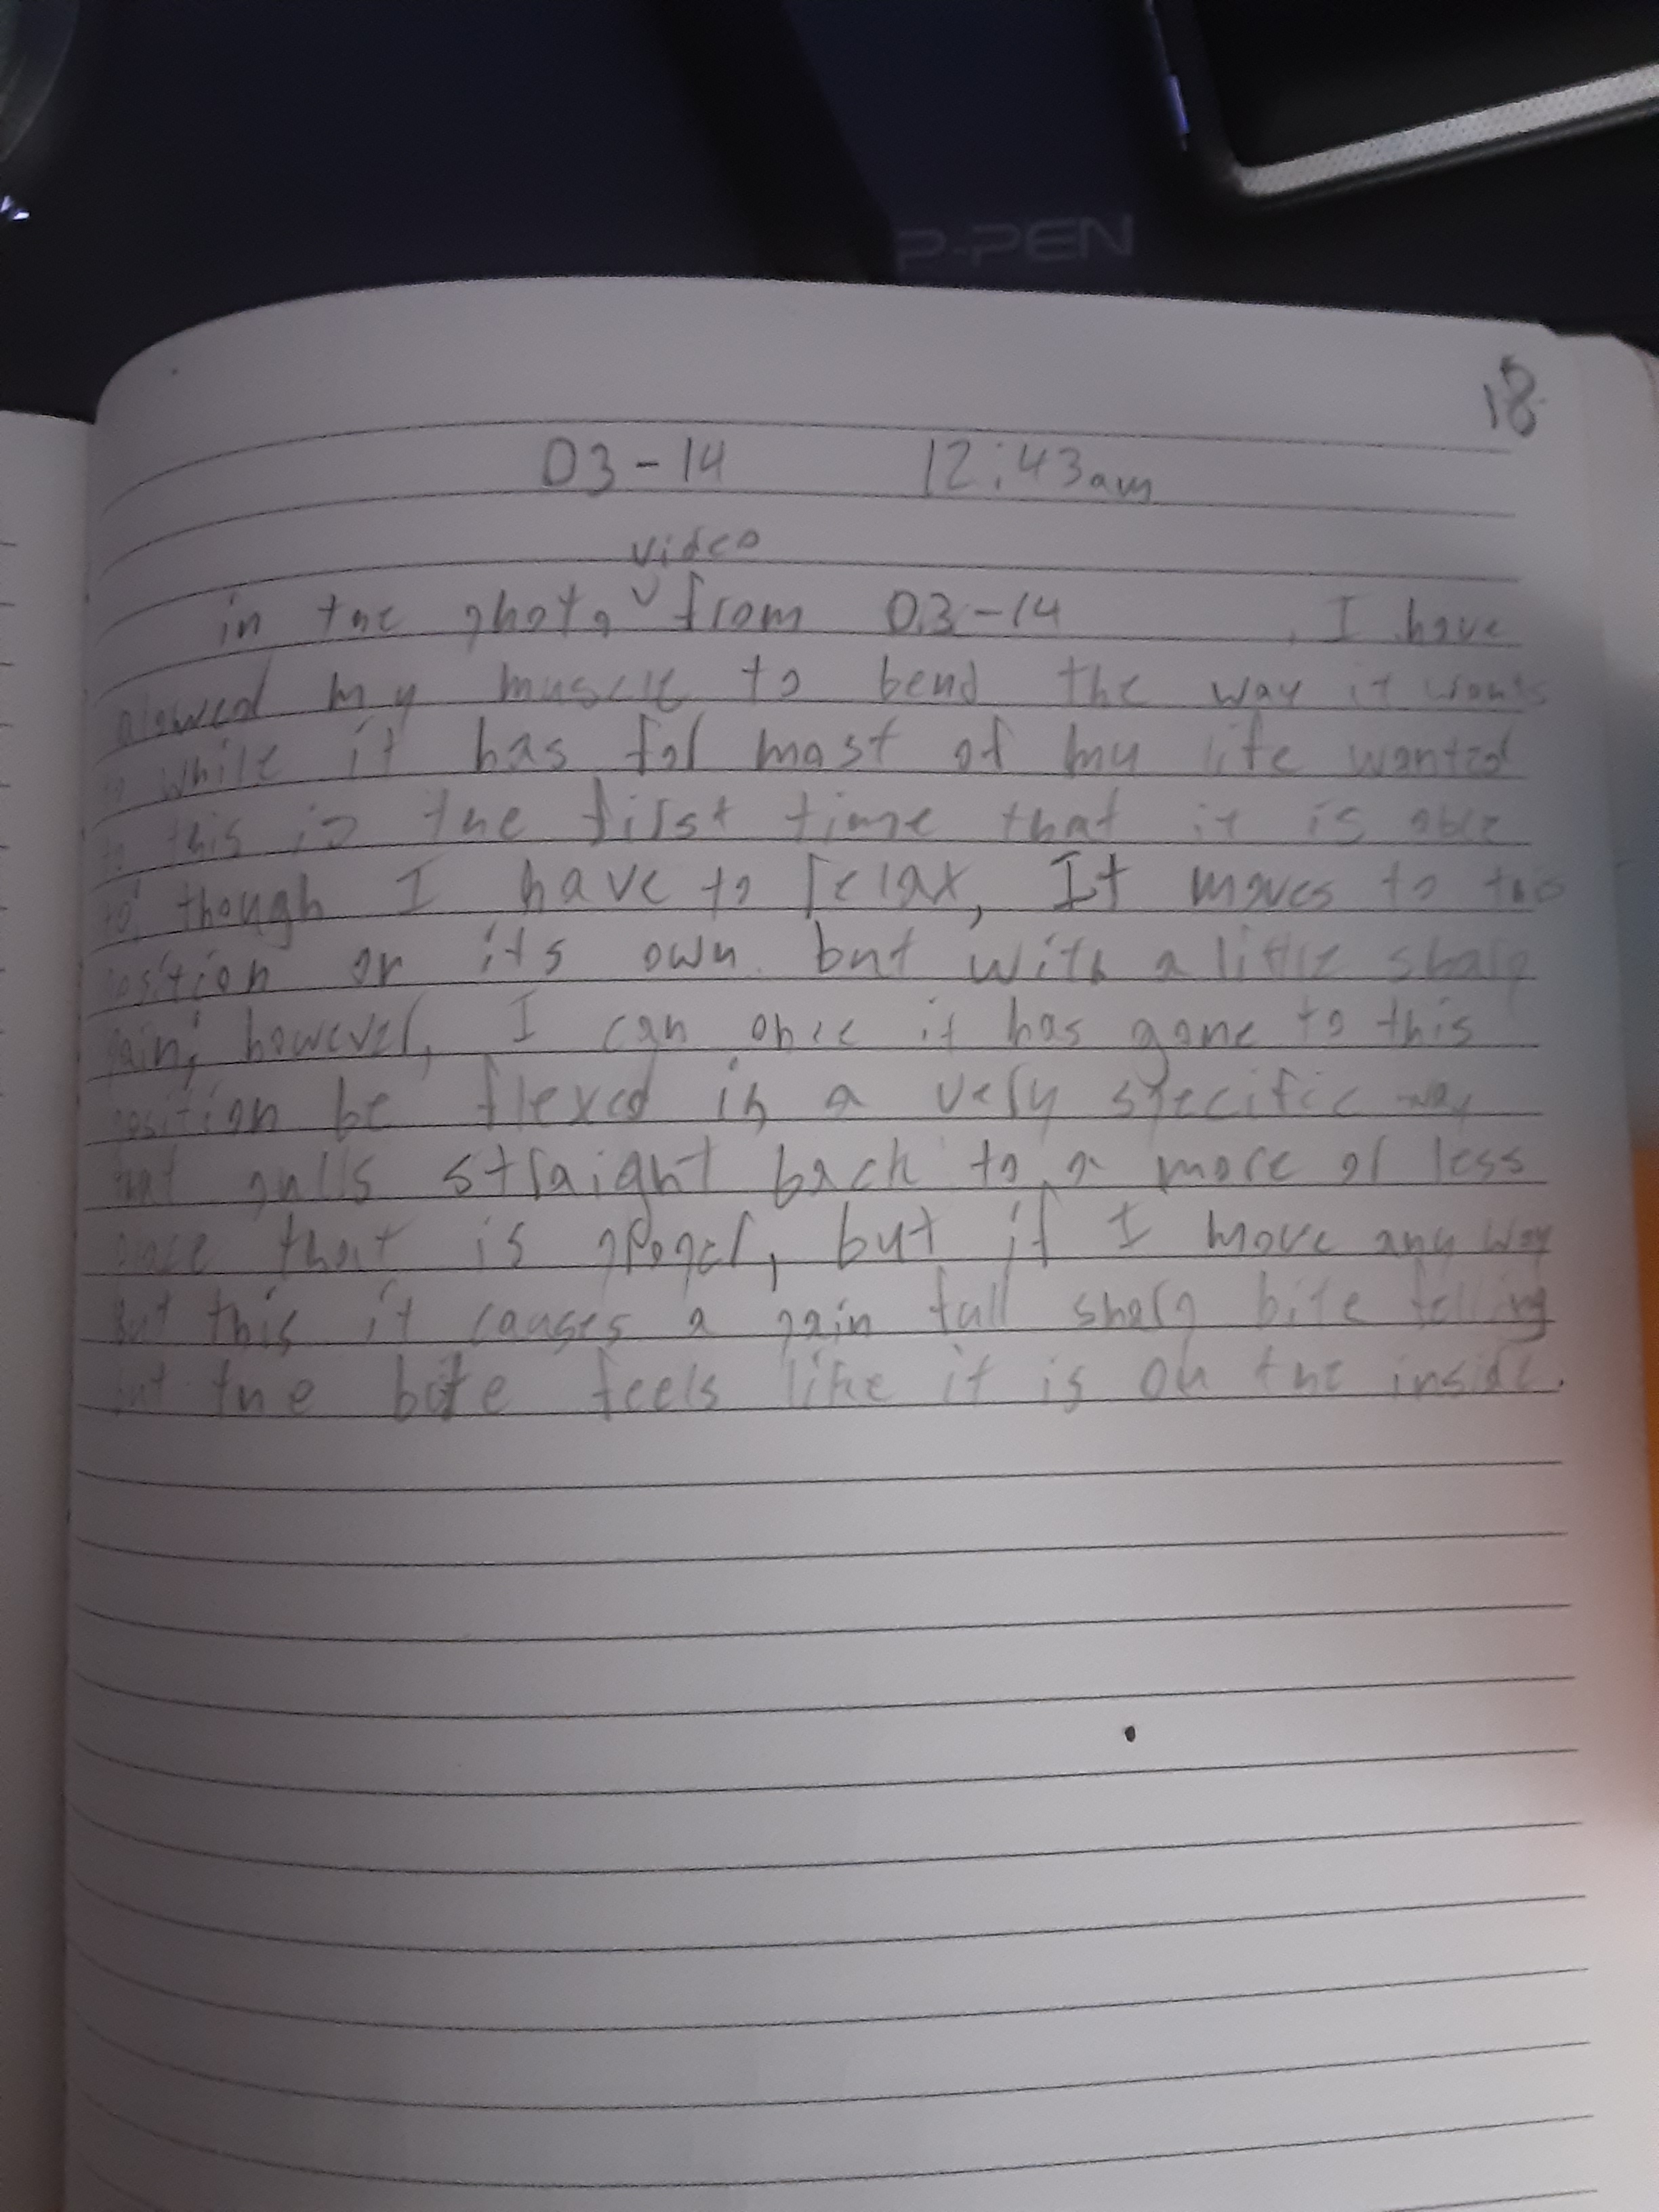 P-PEN
18
03-14 12:43am
video
in the photo v from 03-14 , I have
alowed my muscle to bend the way it wants
to while it has for most of my life wanted
to this is the first time that it is able
to, though I have to relax, It moves to this
position or its own. but with a little sharp
pain; however, I can once it has gone to this
position be flexed in a very specific way
that pulls straight back to a more or less
place that is proper, but if I move any way
but this it causes a pain full sharp bite felling
but the bite feels like it is on the inside.